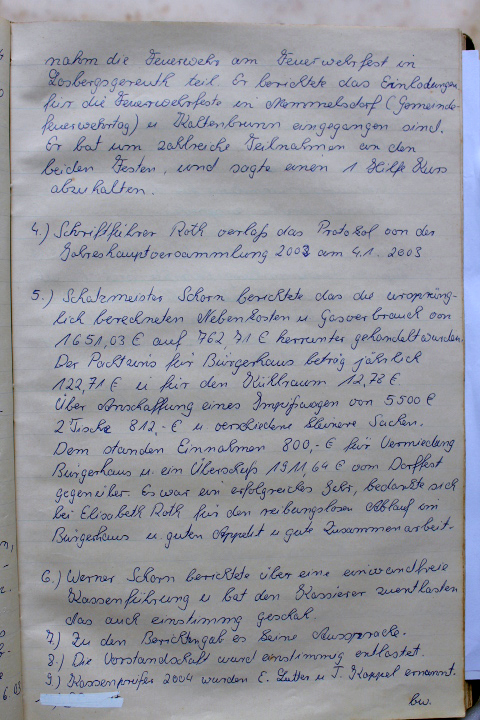 nahm die Feuerwehr am Feuerwehrfest in
Losbergsgereuth teil. Er berichtete das Einladungen
für die Feuerwehrfeste in Memmelsdorf (Gemeinde-
feuerwehrtag) u Kaltenbrunn eingegangen sind.
Er bat um zahlreiche Teilnahmen an den
beiden Festen, und sagte einen 1 Hilfe Kurs
abzuhalten.
4.) Schriftführer Roth verlaß das Protokol von der
Jahreshauptversammlung 2003 am 4.1. 2003
5.) Schatzmeister Schorn berichtete das die ursprüng-
lich berechneten Nebenkosten u Gasverbrauch von
1651,03 € auf 762,71 € herrunter gehandelt wurden.
Der Pachtzins für Bürgerhaus betrög jährlich
122,71 € u für den Kühlraum 12,78 €.
Über Anschaffung eines Impißwagen von 5.500 €
2 Tische 812,- € u verschiedene kleinere Sachen.
Dem standen Einnahmen 800,- € für Vermiedung
Bürgerhaus u. ein Überschuß 1911,64 € vom Dorffest
gegenüber. Es war ein erfolgreiches Jahr, bedankte sich
bei Elisabeth Roth für den reibungslosen Ablauf im
Bürgerhaus u. guten Appetit u gute Zusammenarbeit.
6.) Werner Schorn berichtete über eine einwandfreie
Kassenführung u bat den Kassierer zuentlasten
das auch einstimmg geschah.
7.) Zu den Berichten gab es keine Aussprache.
8.) Die Vorstandschaft wurd einstimmig entlastet.
9.) Kassenprüfer 2004 wurden E. Lutter u T. Kappel ernannt.
bw.